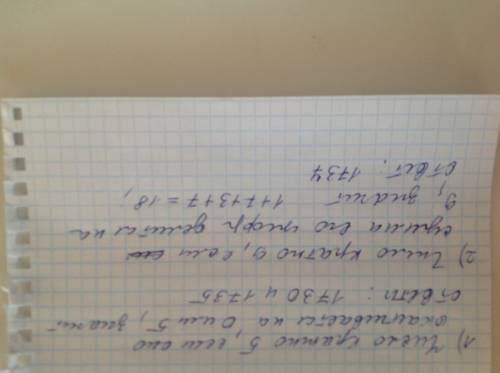 1) Число кратно 5, если оно
оканчивается на 0 или 5, значит
ответ: 1730 и 1735
2) Число кратно 9, если
сумма его цифр делится на
9, значит 1+7+3+7=18,
ответ: 1737